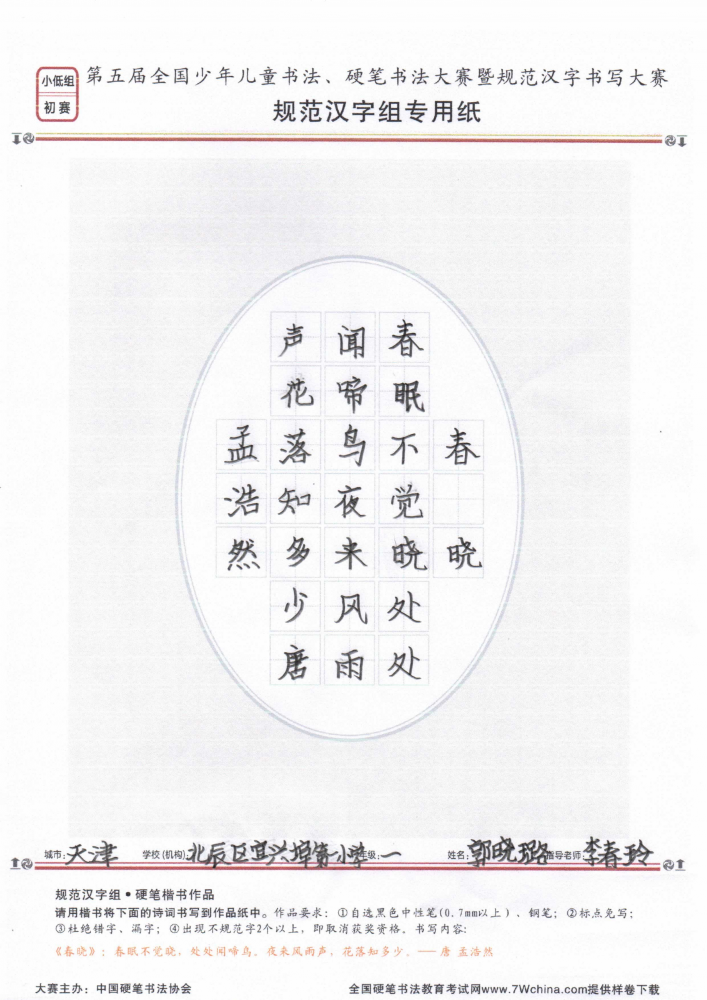 小低组
初赛
第五届全国少年儿童书法、硬笔书法大赛暨规范汉字书写大赛
规范汉字组专用纸
春晓
春眠不觉晓处处
闻啼鸟夜来风雨
声花落知多少唐
孟浩然
城市：天津 学校(机构)：北辰区宜兴埠第小学 年级：一 姓名：郭晓璐 指导老师：李春玲
规范汉字组·硬笔楷书作品
请用楷书将下面的诗词书写到作品纸中。作品要求：①自选黑色中性笔(0.7mm以上)、钢笔；②标点免写；
③杜绝错字、漏字；④出现不规范字2个以上，即取消获奖资格。书写内容：
《春晓》：春眠不觉晓，处处闻啼鸟。夜来风雨声，花落知多少。——唐 孟浩然
大赛主办：中国硬笔书法协会 全国硬笔书法教育考试网www.7Wchina.com提供样卷下载